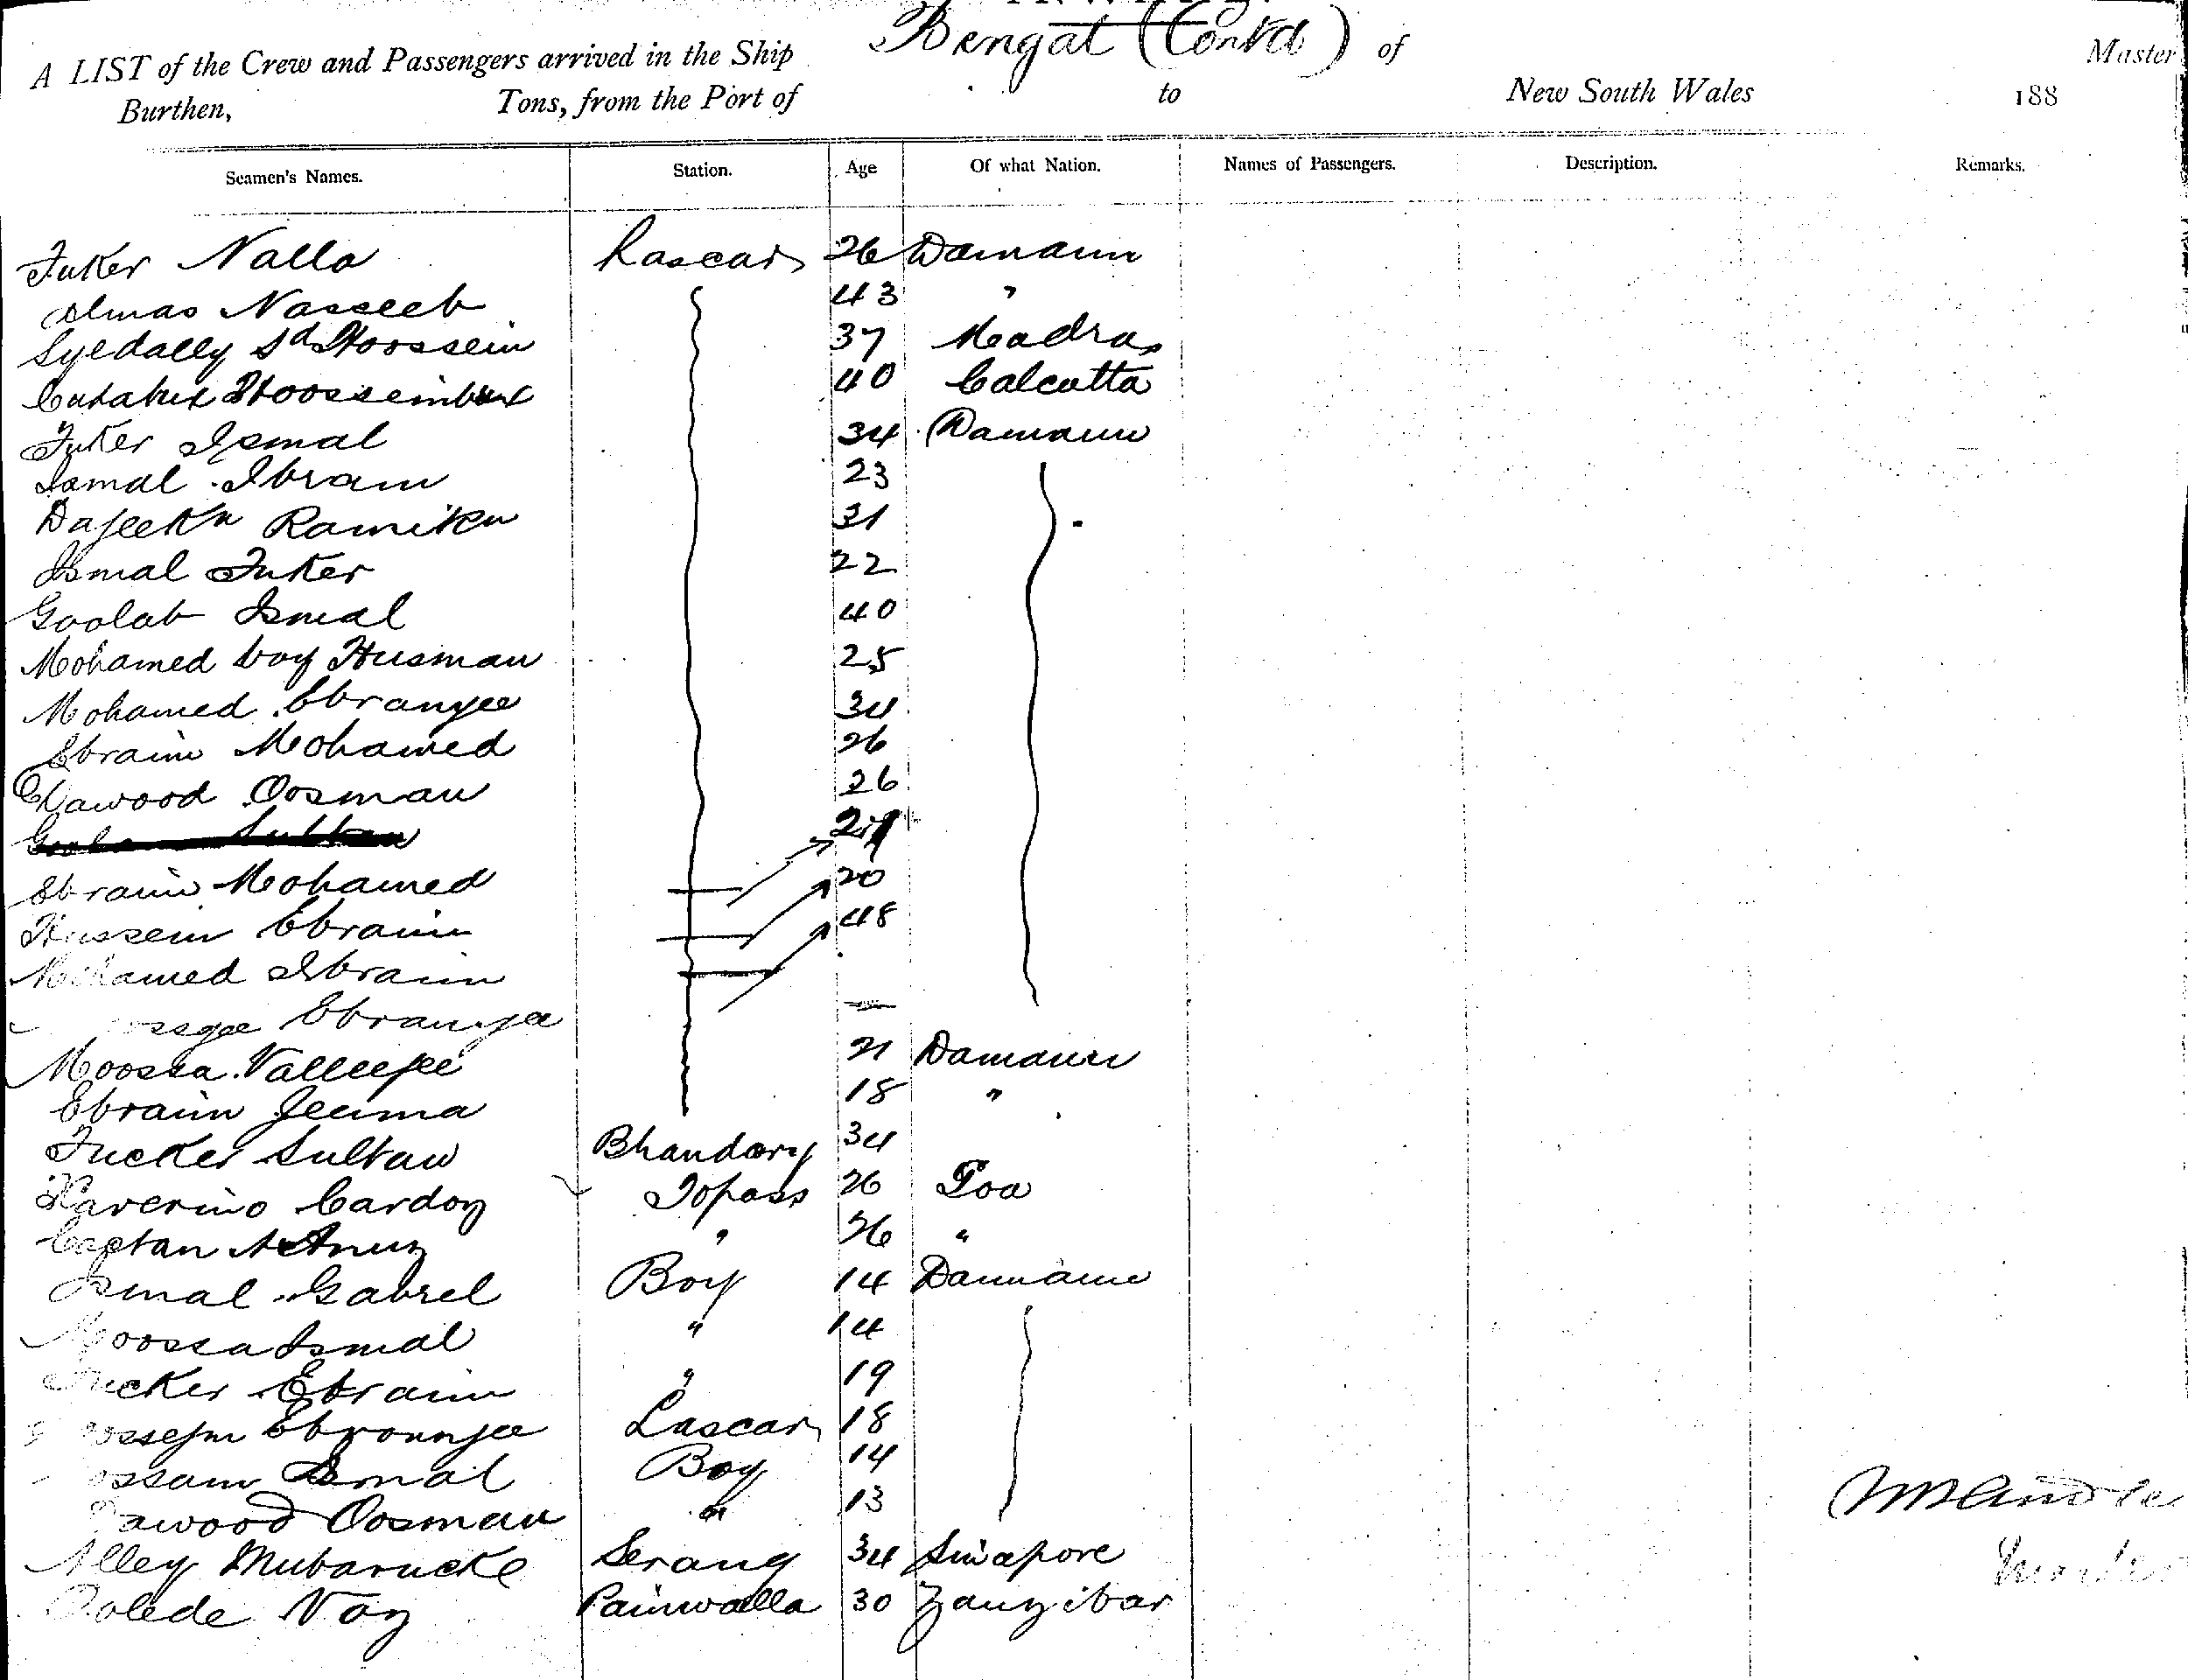 Bengal (Contd) of Master
A LIST of the Crew and Passengers arrived in the Ship
Burthen, Tons, from the Port of to New South Wales 188
Seamen's Names. Station. Age Of what Nation. Names of Passengers. Description. Remarks.
Fuker Nalla Lascar 26 Damaun
Almas Nasseeb 43 "
Syedally Sd Hoossein 37 Madras
Hoosseinbux 40 Calcutta
Fuker Ismal 34 Damaun
Ismal Ibram 23
Dajeekn Ramikn 31
Ismal Fuker 22
Goolab Ismal 40
Mohamed boy Husman 25
Mohamed Ebramjee 34
Ebraim Mohamed 26
Dawood Oosman 26
Sultan
Ebraim Mohamed 20
Hussein Ebraim 48
Mohamed Ibraim
Ebramjee
Moossa Valleejee 21 Damaun
Ebraim Jeuma 18 "
Fucker Sultan Bhandary 34
Xaverino Cardoz Topass 26 Goa
Caetan " 26 "
Ismal Gabrel Boy 14 Damaun
Moossa Ismal " 14
Fucker Ebraim " 19
Ebramjee Lascar 18
Ismal Boy 14
Dawood Oosman " 13
Alley Mubarucke Serang 34 Sinapore
Voz Painwalla 30 Zanzibar